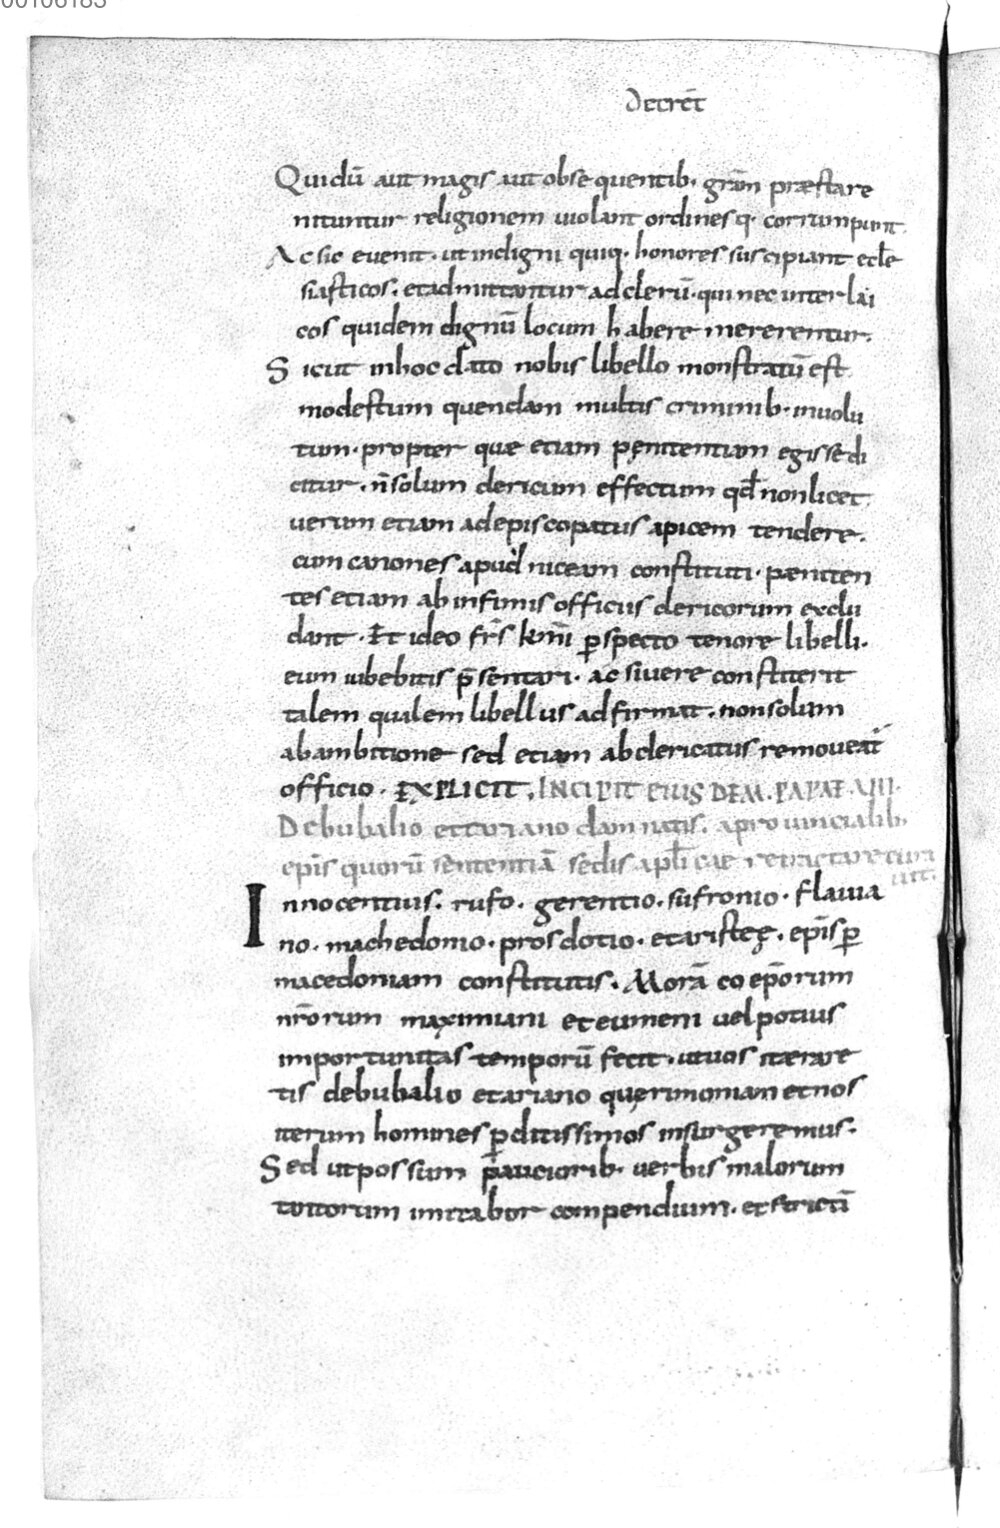 00106183
Decret̄
Qui dū aut magis aut obsequentib· grām præstare
nituntur religionem violant ordinesq· corrumpunt.
Ac sic evenit· ut indigni quiq· honores suscipiant eccle
siasticos. et admittantur ad clerū· qui nec inter lai
cos quidem dignū locum habere mererentur.
Sicut in hoc dato nobis libello monstratū est
modestum quendam multis criminib· involu
tum· propter quæ etiam pęnitentiam egisse di
citur· n̄ solum clericum effectum qđ non licet
verum etiam ad episcopatus apicem tendere.
cum canones apud niceam constituti· pæniten
tes etiam ab infimis officiis clericorum exclu
dant· Et ideo fr̄s km̄i ꝑspecto tenore libelli.
eum iubebitis p̄sentari· ac si vere constiterit
talem qualem libellus adfirmat. non solum
ab ambitione sed etiam ab clericatus removeat̄
officio· EXPLICIT. INCIPIT EIUS DEM. PAPAE. VIII.
De bubalio et tauriano damnatis. a provincialib·
ep̄is quorū sententiā sedis aplicae retractare cura
vit.
Innocentius. rufo. gerentio. sufronio. flavia
no. machedonio. prosdocio. et aristeę. ep̄is ꝑ
macedoniam constitutis. Morā coep̄orum
nr̄orum maximiani et eumeni vel potius
importunitas temporū fecit· ut vos iterare
tis de bubalio et tariano querimoniam et nos
iterum homines ꝑditissimos insurgeremus·
Sed ut possum paucioribۥ verbis malorum
tantorum imitabor compendium· et strictī